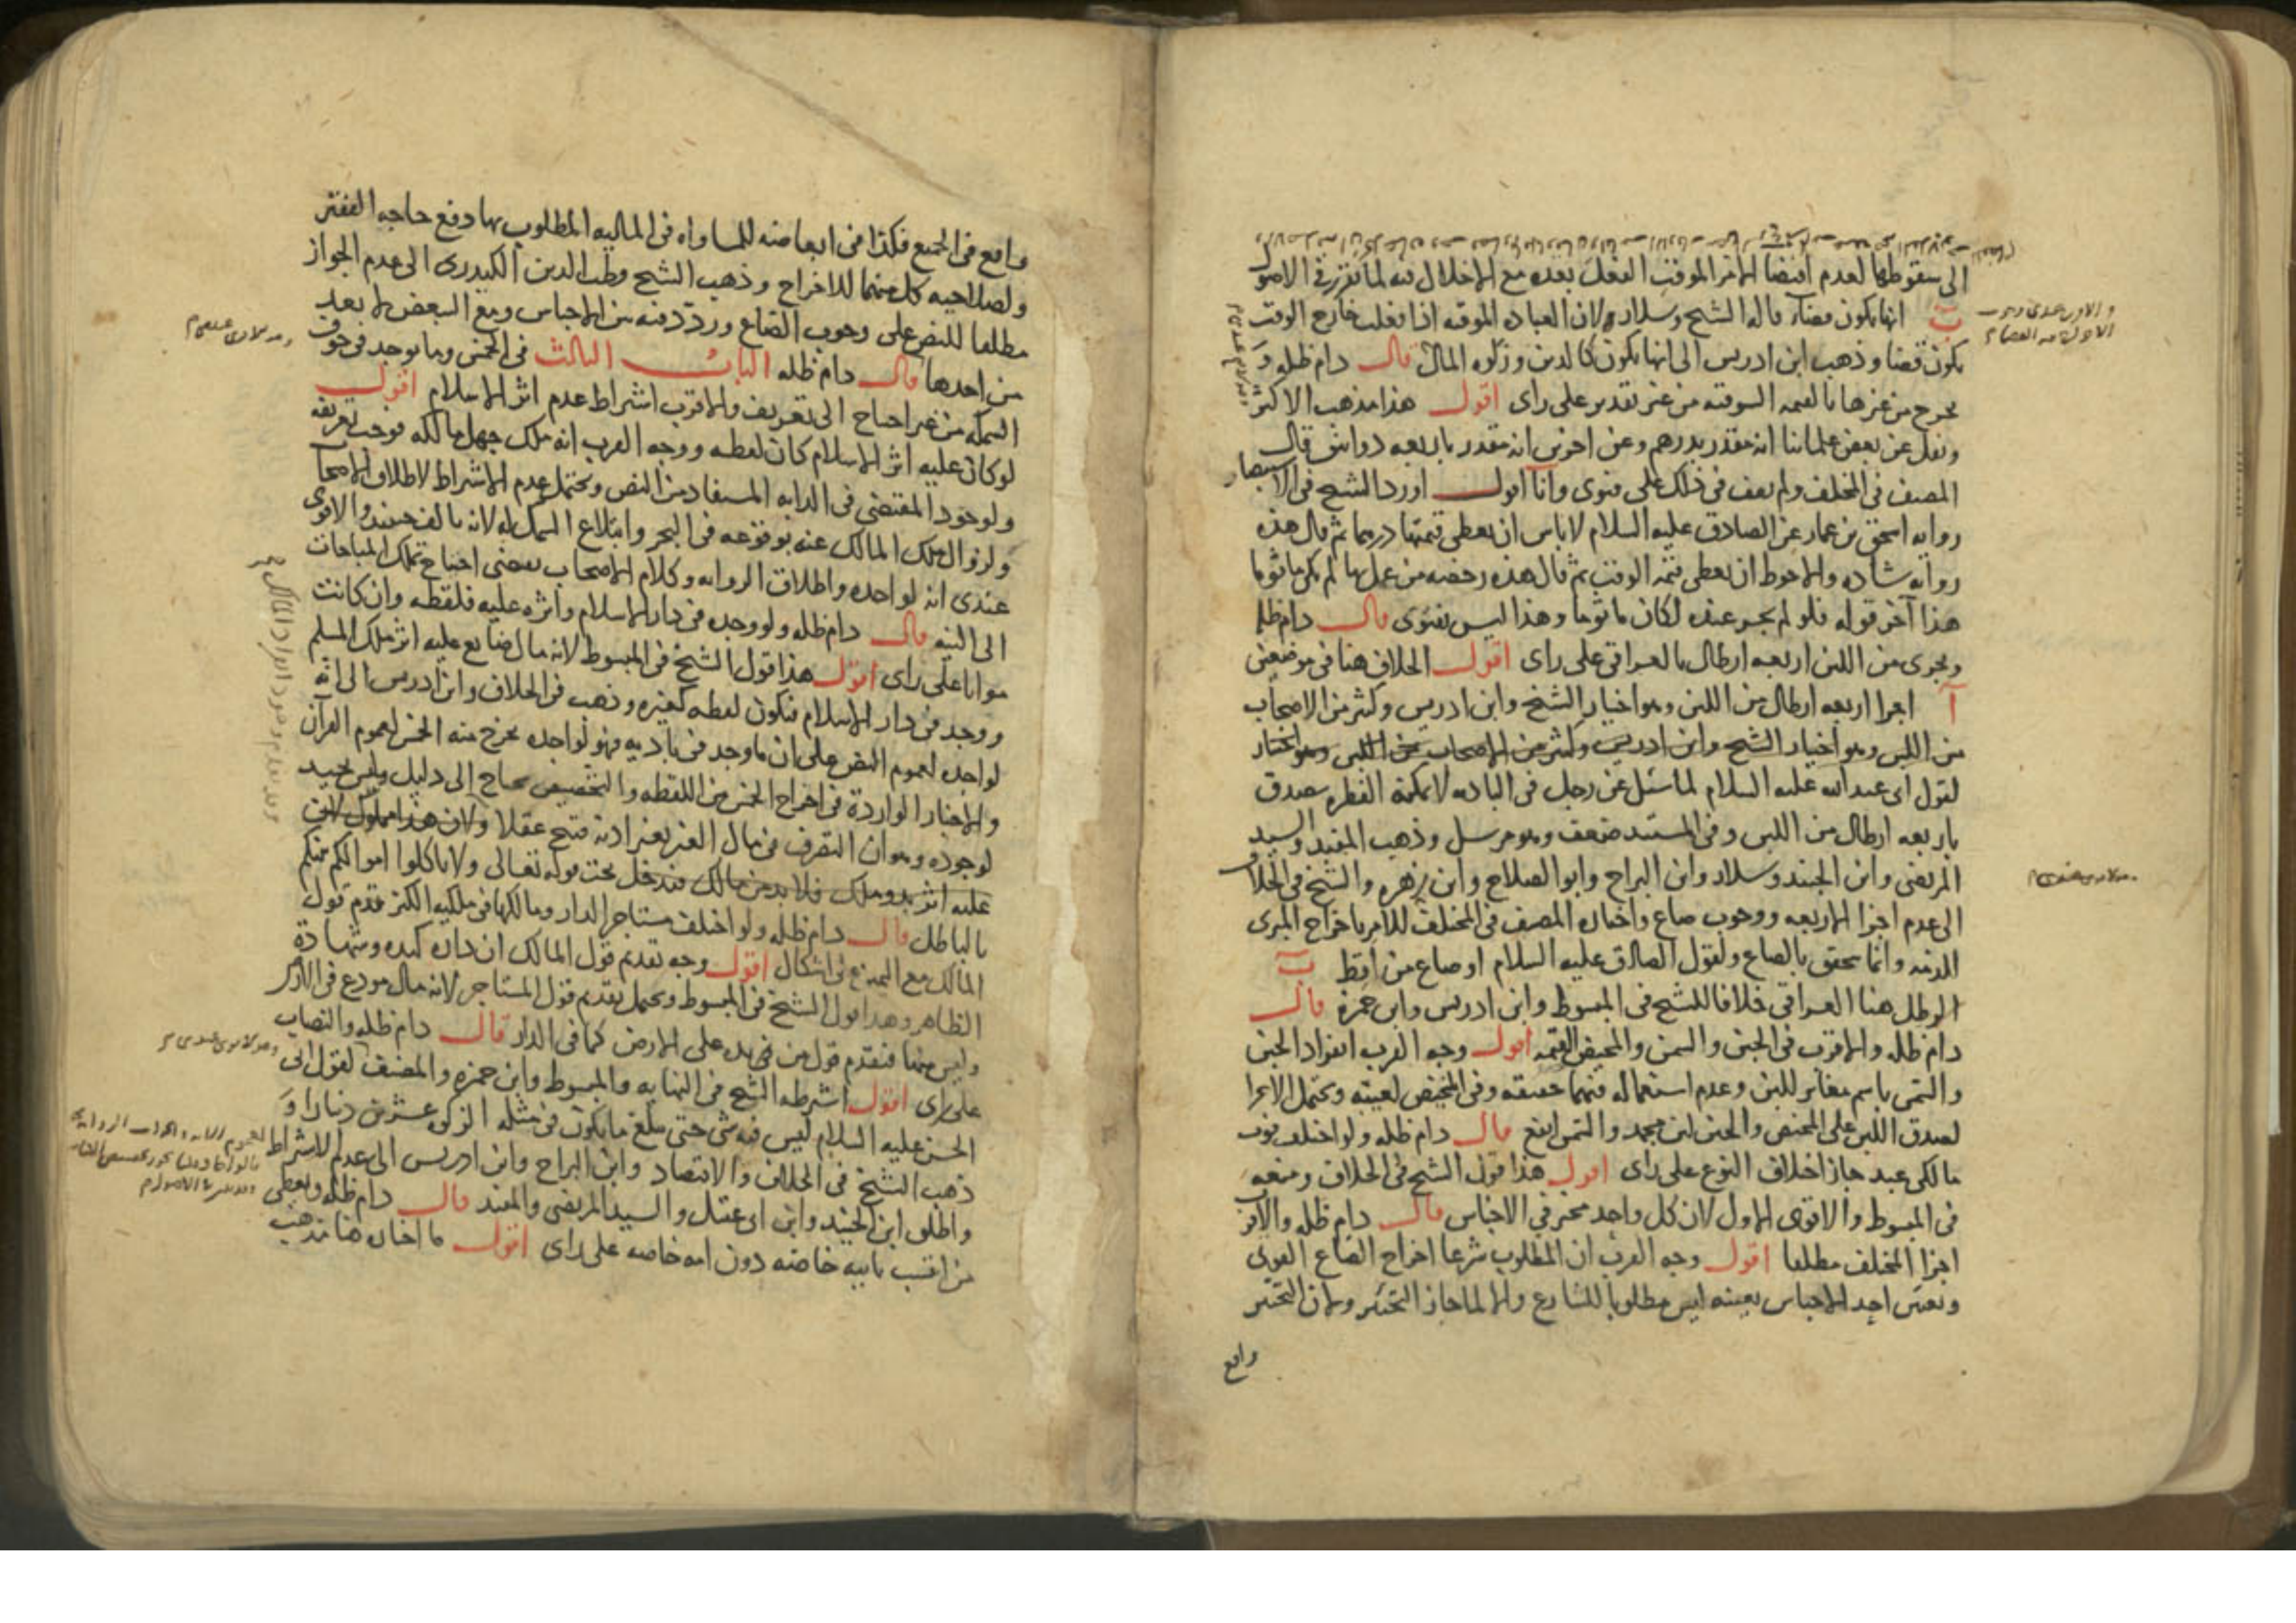 الى سقوطها لعدم اقتضا الامر الموقت الفعل بعده مع الاخلال فيه لما تقرر في الاصول
ب انها يكون قضاء قاله الشيخ وسلار ولان العباده الموقته اذا فعلت خارج الوقت
يكون قضا وذهب ابن ادريس الى انها يكون كالدين وزكوه المال قال دام ظله و
يخرج من غيرها بالقيمه السوقيه من غير تقدير على راى اقول هذا مذهب الاكثر
ونقل عن بعض علمائنا انه مقدر بدرهم وعن اخرين انه مقدر باربعه دوانيق قال
المصنف في المختلف ولم نقف في ذلك على فتوى وانا اقول اورد الشيخ في الاستبصار
روايه اسحق بن عمار عن الصادق عليه السلام لا باس ان يعطى قيمتها درهما ثم قال هذه
روايه شاده والاحوط ان يعطى قيمه الوقت ثم قال هذه رخصه من عمل بها لم يكن ماثوما
هذا آخر قوله فلو لم يجز عنده لكان ماثوما وهذا ليس بفتوى قال دام ظله
ويجزى من اللبن اربعه ارطال بالعراقي على راى اقول الخلاف هنا في موضعين
آ اجزا اربعه ارطال من اللبن وهو اختيار الشيخ وابن ادريس وكثير من الاصحاب
من اللبن وهو اختيار الشيخ وابن ادريس وكثير من الاصحاب من اللبن وهو اختيار
لقول ابى عبد الله عليه السلام لما سئل عن رجل في الباديه لا يمكنه الفطره يصدق
باربعه ارطال من اللبن وفي المستند ضعف وهو مرسل وذهب المفيد والسيد
المرتضى وابن الجنيد وسلار وابن البراج وابو الصلاح وابن زهره والشيخ في الخلاف
الى عدم اجزا الاربعه ووجوب صاع واختاره المصنف في المختلف للامر باخراج المبرى
الذمه وانما يتحقق بالصاع ولقول الصادق عليه السلام او صاع من اقط ب
الرطل هنا العراقي خلافا للشيخ في المبسوط وابن ادريس وابن حمزة قال
دام ظله والاقرب في الجبن والسمن والمخيض القيمه اقول وجه القرب انفراد الجبن
والسمن باسم مغاير للبن وعدم استعماله فيهما حقيقه وفي المخيض لعيبه ويحتمل الاجزا
لصدق اللبن على المخيض والجبن لبن مجمد والسمن انفع قال دام ظله ولو اختلف قوت
مالكى عبد جاز اختلاف النوع على راى اقول هذا قول الشيخ في الخلاف ومنعه
في المبسوط والاقوى الاول لان كل واحد مخير في الاجناس قال دام ظله والاقرب
اجزا المختلف مطلقا اقول وجه القرب ان المطلوب شرعا اخراج الصاع القوتى
وتعين احد الاجناس بعينه ليس مطلوبا للشارع والا لما جاز التخيير ولان التخيير
واقع
واقع في الجميع فكذا في ابعاضه للمساواه في الماليه المطلوب بها دفع حاجه الفقير
ولصلاحيه كل منهما للاخراج وذهب الشيخ وقطب الدين الكيدرى الى عدم الجواز
مطلقا للنص على وجوب الصاع وردد فيه بين الاجناس ومع التبعض لا يعد
من احدها قال دام ظله الباب الثالث في الخمس وما يوجد في جوف
السمكه من غير احتياج الى تعريف والاقرب اشتراط عدم اثر الاسلام اقول
لو كان عليه اثر الاسلام كان لقطه ووجه القرب انه ملك جهل مالكه فوجب تعريفه
ولوجود المقتضى في الدابه المستفاد من النص ويحتمل عدم الاشتراط لاطلاق الاصحاب
ولزوال ملك المالك عنه بوقوعه في البحر وابتلاع السمك له لانه تالف حينئذ والاقوى
عندى انه لواجده واطلاق الروايه وكلام الاصحاب يقتضى احتياج تملك المباحات
الى النيه قال دام ظله ولو وجده في دار الاسلام واثره عليه فلقطه وان كانت
مواتا على راى اقول هذا قول الشيخ في المبسوط لانه مال ضايع عليه اثر ملك المسلم
ووجد في دار الاسلام فيكون لقطه كغيره وذهب في الخلاف وابن ادريس الى انه
لواجده لعموم النص على ان ما وجد في باديه فهو لواجده يخرج منه الخمس لعموم القرآن
والاخبار الواردة في اخراج الخمس من اللقطه والتخصيص محتاج الى دليل وليس بجيد
لوجوده وهو ان التصرف في مال الغير بغير اذنه قبيح عقلا ولان هذا مملوك لان
عليه اثر يد وملك فلا بد من مالك فيدخل تحت قوله تعالى ولا تاكلوا اموالكم بينكم
بالباطل قال دام ظله ولو اختلف مستاجر الدار ومالكها في ملكيه الكنز قدم قول
المالك مع اليمين على اشكال اقول وجه تقديم قول المالك ان داره كيده وشهادة
الظاهر وهذا قول الشيخ في المبسوط ويحتمل تقديم قول المستاجر لانه مال مودع في الارض
وليس منها فيقدم قول من في يده على الارض كما في الدار قال دام ظله والنصاب
على راى اقول اشترطه الشيخ في النهايه والمبسوط وابن حمزه والمصنف لقول ابى
الحسن عليه السلام ليس فيه شى حتى يبلغ ما يكون في مثله الزكوه عشرين دينارا و
ذهب الشيخ في الخلاف والاقتصاد وابن البراج وابن ادريس الى عدم الاشتراط
واطلق ابن الجنيد وابن ابى عقيل والسيد المرتضى والمفيد قال دام ظله ويعطى
من انتسب بابيه خاصه دون امه خاصه على راى اقول ما اختاره هنا مذهب